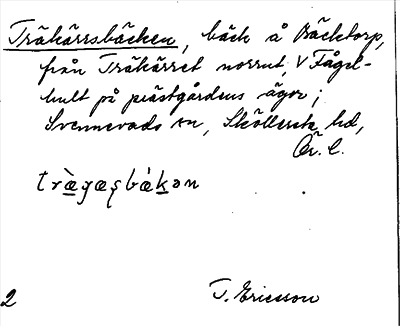 Träkärrsbäcken, bäck å Bäcktorp,
från Träkärret norrut, V Fågel-
hult på prästgårdens ägor;
Svennevads sn, Sköllersta hd,
Ör. l.
träg̣æṣbækən
2 T. Ericsson